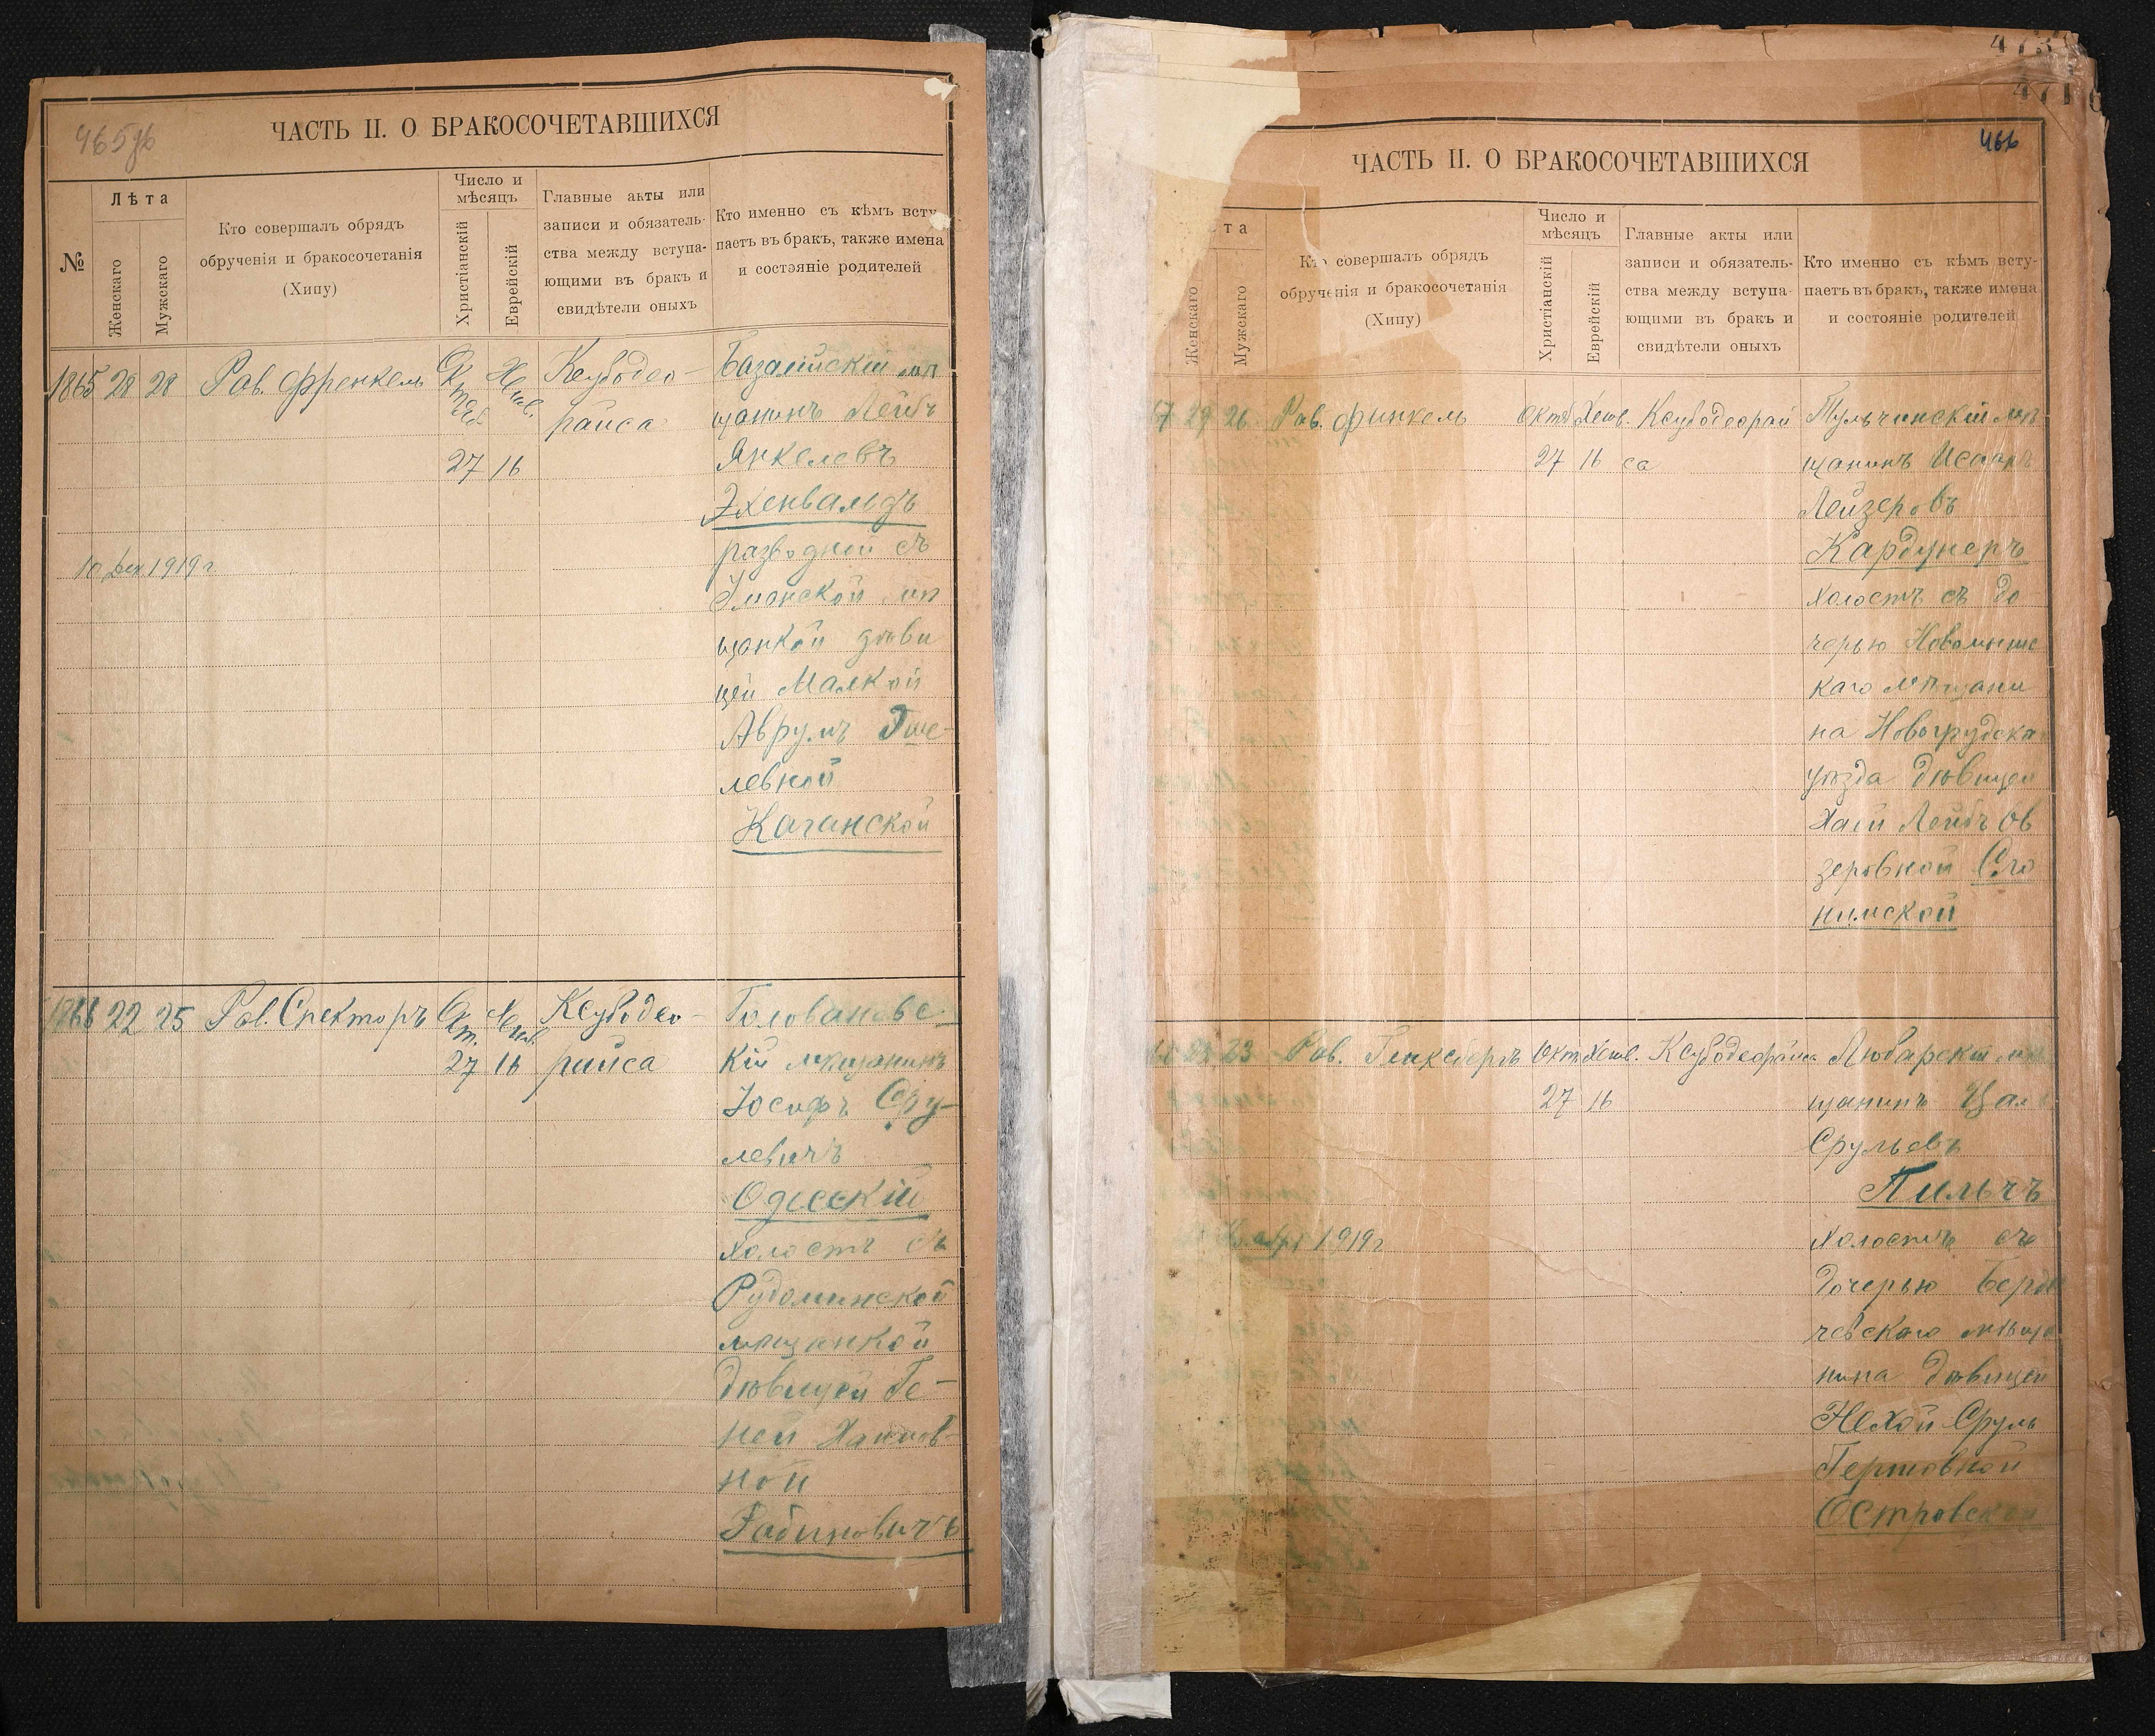 465об
ЧАСТЬ II. О БРАКОСОЧЕТАВШИХСЯ
№
Лѣта
Женскаго
Мужскаго
Кто совершалъ обрядъ
обрученія и бракосочетанія
(Хипу)
Число и
мѣсяцъ
Христіанскій
Еврейскій
Главные акты или
записи и обязатель-
ства между вступа-
ющими въ бракъ и
свидѣтели оныхъ
Кто именно съ кѣмъ всту-
паетъ въ бракъ, также имена
и состояніе родителей
1865 28 28 Рав. Френкель
27 16
Ксубодео-
райса
Базалійскій мѣ
щанинъ Лейбъ
Янкелевъ
Эхенвальдъ
разводной съ
Уманской мѣ
щанкой дѣви
цей Малкой
Аврумъ
левной
Каганской
10 Дек 1919 г
1866 22 25 Рав. Спекторъ
27 16
Ксубодео-
райса
Голованевс
кій мѣщанинъ
Іосифъ Сру-
левичъ
Одесскій
холостъ съ
Рудоминской
мѣщанкой
дѣвицей Ге-
ней Хаимов-
ной
Рабиновичъ
473
471
466
ЧАСТЬ II. О БРАКОСОЧЕТАВШИХСЯ
та
Женскаго
Мужскаго
Кто совершалъ обрядъ
обрученія и бракосочетанія
(Хипу)
Число и
мѣсяцъ
Христіанскій
Еврейскій
Главные акты или
записи и обязатель-
ства между вступа-
ющими въ бракъ и
свидѣтели оныхъ
Кто именно съ кѣмъ всту-
паетъ въ бракъ, также имена
и состояніе родителей
7 29 26 Рав. Финкель Октб Хешв. Ксубодеорай
27 16 са
Тульчинскій мѣ
щанинъ
Лейзеровъ
Кардунеръ
холостъ съ до
черью Новомыше
каго мѣщани
на Новогрудска
уѣзда дѣвицей
Хаей Лейбъ Ов
зеровной Сло
нимской
23 Рав. Генксбергъ Окт Хешв. Ксубодеорайса
27 16
Любарскій мѣ
щанинъ
Срульевъ
Пильчъ
холостъ съ
дочерью Берди
чевскаго мѣща
нина дѣвицей
Нехой Сруль
Гершовной
Островской
1919 г